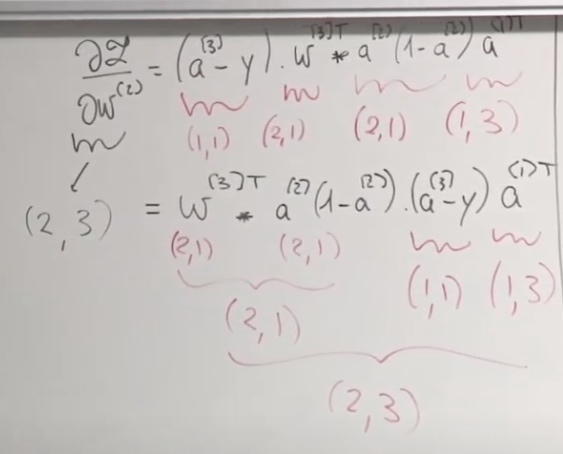 ∂ℒ/∂W^(2) = (a^[3] - y) . W^[3]T * a^[2] (1 - a^[2]) a^[1]T
(1,1) (2,1) (2,1) (1,3)
(2,3) = W^[3]T * a^[2] (1 - a^[2]) . (a^[3] - y) a^[1]T
(2,1) (2,1) (1,1) (1,3)
(2,1)
(2,3)